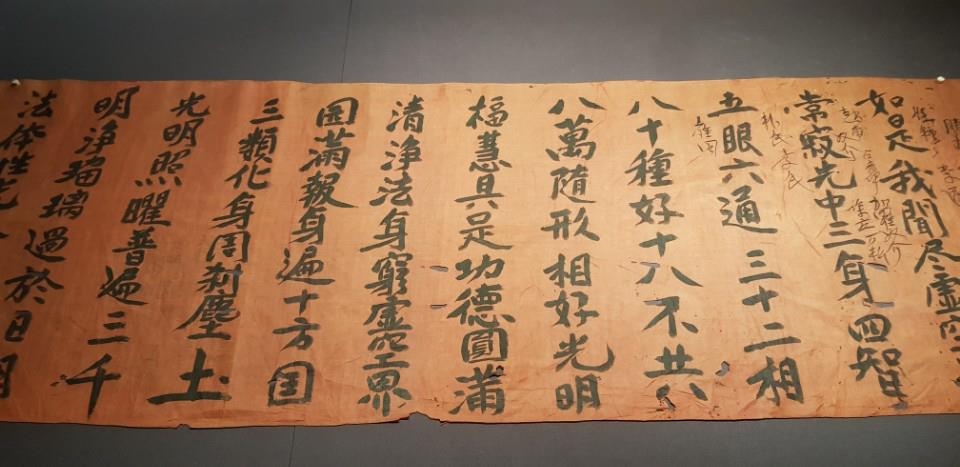 如是我聞尽虚空
常寂光中三身四智
五眼六通三十二相
八十種好十八不共
八萬随形相好光明
福慧具足功德圓滿
清浄法身窮虚空界
圎滿報身遍十方国
三類化身周刹塵土
光明照曜普遍三千
明浄瑠璃過於日月
法体性